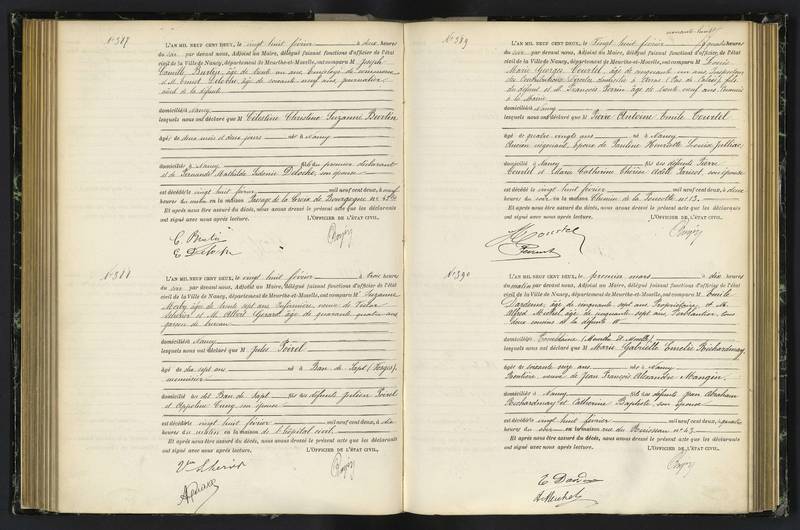 N° 387
L'AN MIL NEUF CENT DEUX, le vingt huit février à deux heures
du soir par devant nous, Adjoint au Maire, délégué faisant fonctions d'officier de l'état
civil de la Ville de Nancy, département de Meurthe-et-Moselle, ont comparu M Joseph
Camille Burtin, âgé de trente un ans Employé de commerce
et M. Ernest Deloche, âgé de soixante neuf ans, journalier
aïeul de la défunte
domiciliés à Nancy
lesquels nous ont déclaré que M Célestine Christine Suzanne Burtin
âgé de deux mois et deux jours né à Nancy
domicilié à Nancy fille du premier déclarant
et de Fernande Mathilde Deloche, son épouse
est décédé le vingt huit février mil neuf cent deux, à neuf
heures du matin en la maison Passage de la Croix de Bourgogne n°
Et après nous être assuré du décès, nous avons dressé le présent acte que les déclarants
ont signé avec nous après lecture. L'OFFICIER DE L'ÉTAT CIVIL,
C. Burtin
E Deloche
N° 388
L'AN MIL NEUF CENT DEUX, le vingt huit février à trois heures
du soir par devant nous, Adjoint au Maire, délégué faisant fonctions d'officier de l'état
civil de la Ville de Nancy, département de Meurthe-et-Moselle, ont comparu M Suzanne
âgée de trente sept ans Infirmière, veuve de
et M. Albert Gérard âgé de quarante quatre ans
garçon de bureau
domiciliés à Nancy
lesquels nous ont déclaré que M Jules Poirel
âgé de dix sept ans né à Ban de Sapt (Vosges)
menuisier
domicilié au dit Ban de Sapt fils des défunts Julien Poirel
et Appoline son épouse
est décédé le vingt huit février mil neuf cent deux, à dix
heures du matin en la maison de l'hôpital civil
Et après nous être assuré du décès, nous avons dressé le présent acte que les déclarants
ont signé avec nous après lecture. L'OFFICIER DE L'ÉTAT CIVIL,
N° 389
L'AN MIL NEUF CENT DEUX, le vingt huit février à quatre heures
du soir par devant nous, Adjoint au Maire, délégué faisant fonctions d'officier de l'état
civil de la Ville de Nancy, département de Meurthe-et-Moselle, ont comparu M Louis
Marie Georges Courtel, âgé de cinquante un ans Inspecteur
des Contributions domicilié à Arras (Pas de Calais) fils
du défunt et M. François Perrin âgé de trente neuf ans Commis
à la Mairie
domiciliés à Nancy
lesquels nous ont déclaré que M Pierre Antoine Emile Courtel
âgé de quatre vingts ans né à Nancy
Ancien négociant, époux de Pauline Henriette Louise
domicilié à Nancy fils des défunts Pierre
Courtel et Marie Catherine Thérèse Adèle son épouse
est décédé le vingt huit février mil neuf cent deux, à deux
heures du soir en la maison Chemin de la n° 13
Et après nous être assuré du décès, nous avons dressé le présent acte que les déclarants
ont signé avec nous après lecture. L'OFFICIER DE L'ÉTAT CIVIL,
Courtel
Perrin
N° 390
L'AN MIL NEUF CENT DEUX, le premier mars à dix heures
du matin par devant nous, Adjoint au Maire, délégué faisant fonctions d'officier de l'état
civil de la Ville de Nancy, département de Meurthe-et-Moselle, ont comparu M Emile
âgé de cinquante sept ans Propriétaire et M.
Alfred Michel, âgé de cinquante sept ans, Ferblantier, tous
deux cousins de la défunte
domiciliés à Tomblaine (Meurthe et Moselle)
lesquels nous ont déclaré que M Marie Gabrielle Emélie Richardmay
âgé de soixante onze ans né à Nancy
Rentière veuve de Jean François Alexandre Mangin
domicilié à Nancy fille des défunts Jean Abraham
Richardmay et Catherine Baptiste, son épouse
est décédé le vingt huit février mil neuf cent deux, à quatre
heures du soir en la maison rue du Ruisseau n° 43
Et après nous être assuré du décès, nous avons dressé le présent acte que les déclarants
ont signé avec nous après lecture. L'OFFICIER DE L'ÉTAT CIVIL,
A. Michel